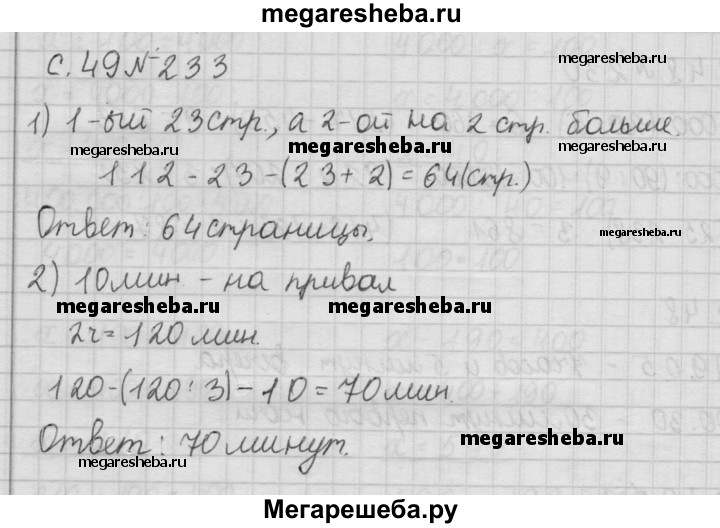 megaresheba.ru
с. 49 № 233
megaresheba.ru
1) 1-ый 23 стр., а 2-ой на 2 стр. больше.
megaresheba.ru megaresheba.ru megaresheba.ru
112 - 23 - (23 + 2) = 64 (стр.)
Ответ: 64 страницы.
megaresheba.ru
2) 10 мин - на привал
megaresheba.ru megaresheba.ru
2ч = 120 мин.
120 - (120 : 3) - 10 = 70 мин.
Ответ: 70 минут.
megaresheba.ru
megaresheba.ru
Мегарешеба.ру